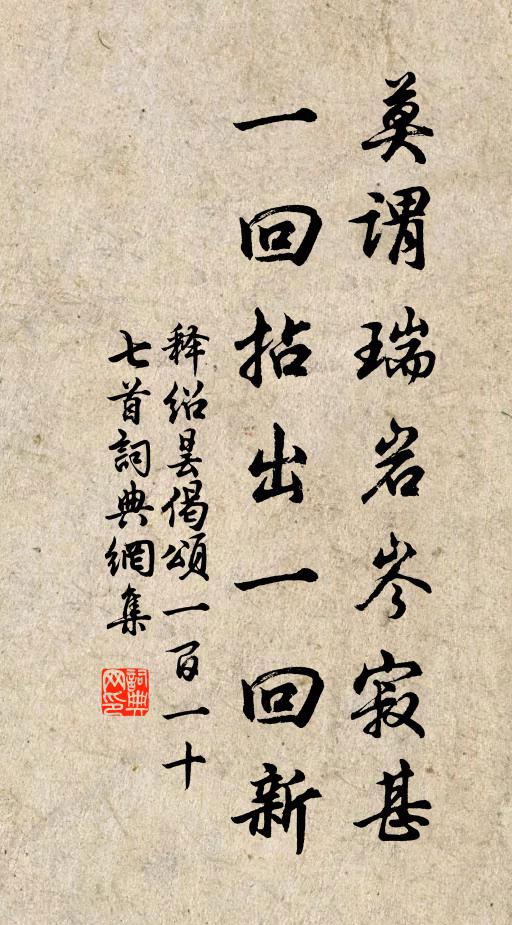 莫谓瑞岩岑寂甚
一回拈出一回新
释绍昙偈颂一百一十
七首詞典網集
詞典
网印